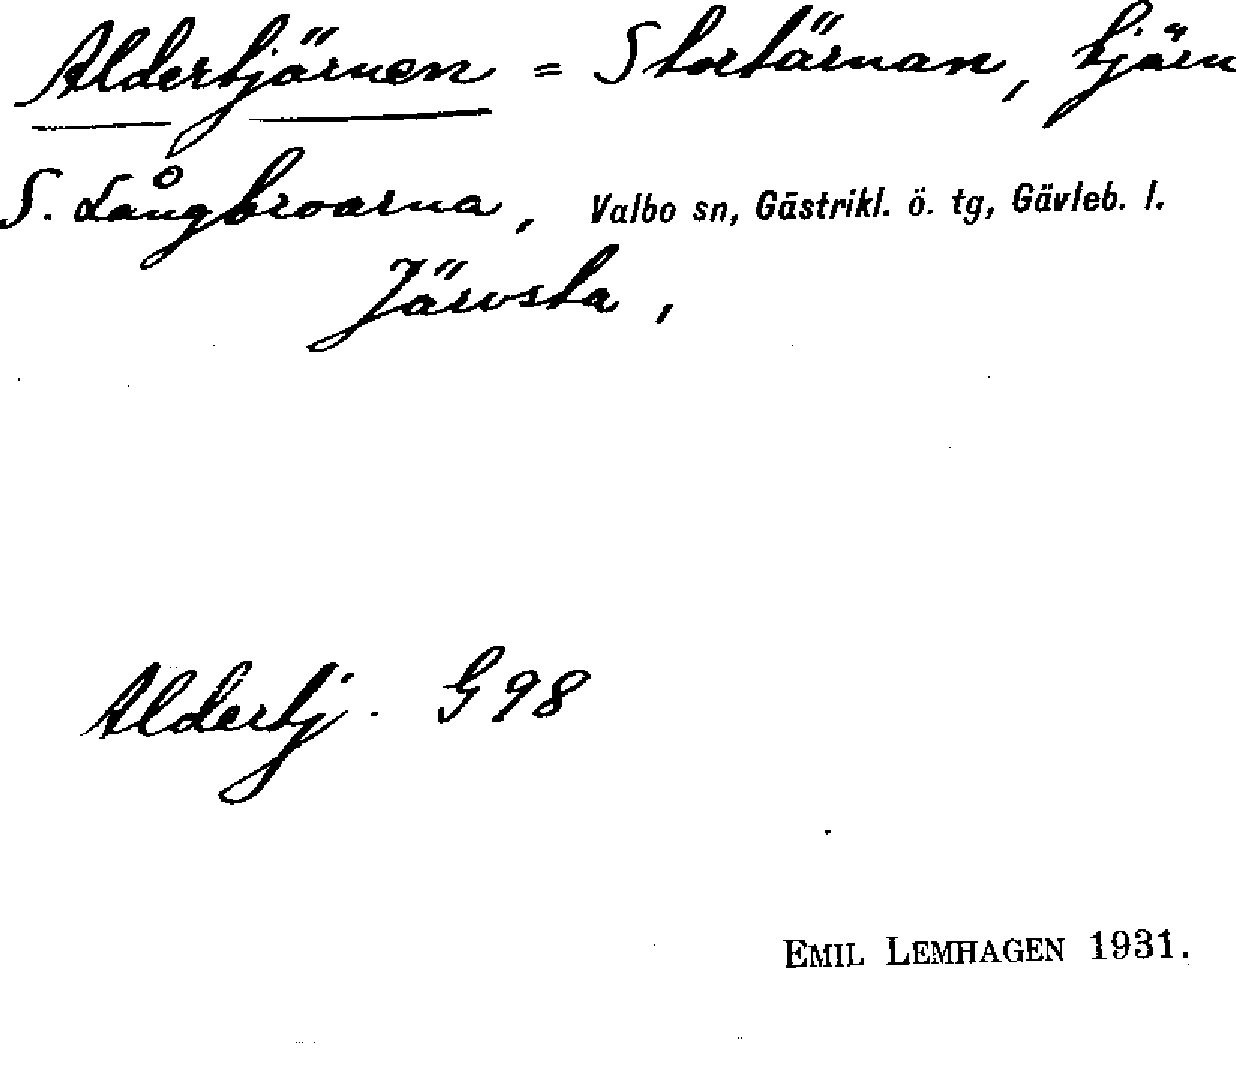 Aldertjärnen = Stortärnan, tjärn
S. Långbroarna, Valbo sn, Gästrikl. ö. tg, Gävleb. l.
Järvsta,
Aldertj. G 98
EMIL LEMHAGEN 1931.